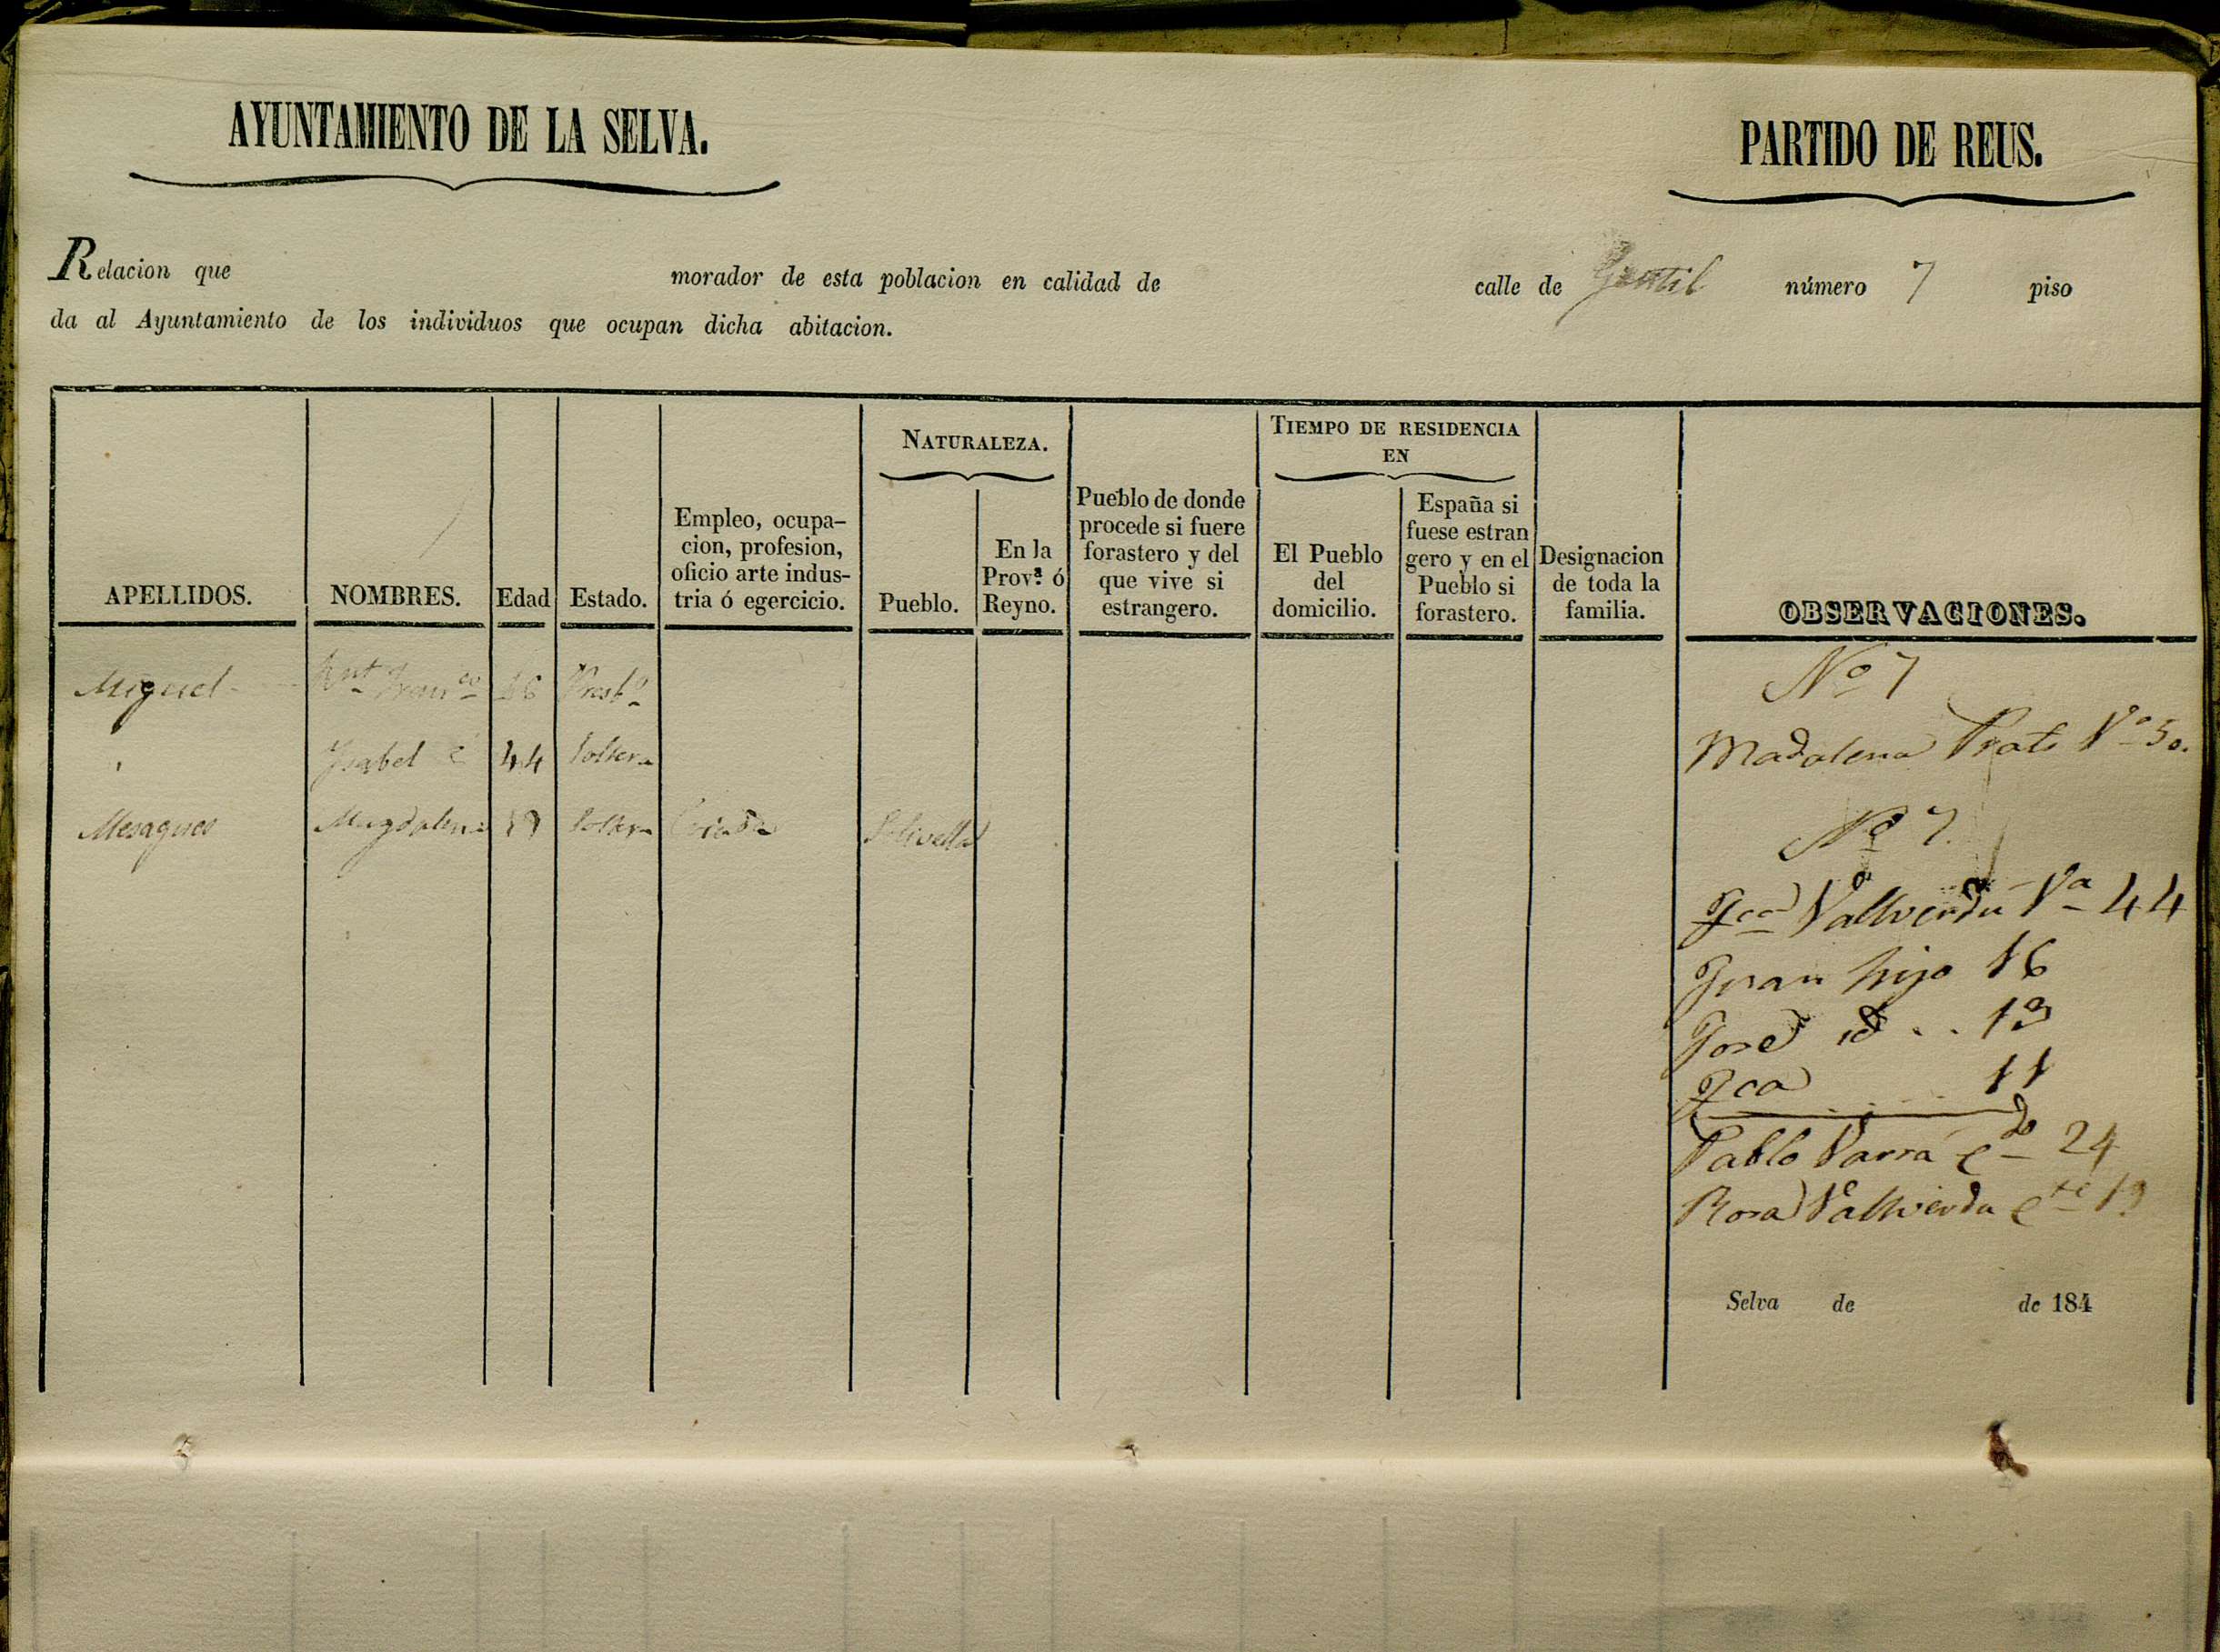 AYUNTAMIENTO DE LA SELVA.
PARTIDO DE REUS.
Relacion que morador de esta poblacion en calidad de calle de Gentil número 7 piso
da al Ayuntamiento de los individuos que ocupan dicha abitacion.
APELLIDOS.
NOMBRES.
Edad
Estado.
Empleo, ocupa-
cion, profesion,
oficio arte indus-
tria ó egercicio.
NATURALEZA.
Pueblo.
En la
Prov.ª ó
Reyno.
Pueblo de donde
procede si fuere
forastero y del
que vive si
estrangero.
TIEMPO DE RESIDENCIA
EN
El Pueblo
del
domicilio.
España si
fuese estran
gero y en el
Pueblo si
forastero.
Designacion
de toda la
familia.
OBSERVACIONES.
Miguel Ant Franco Presbo
Ysabel 44 Soltera
Mesagues Magdalena 19 Soltera Criada Solivella
No 7
Madalena Prats Va 50.
No 7.
Fca Vallverdu Va 44
Juan hijo 16
José id .. 13
Fca 11
Pablo Parra cdo 24
Rosa Vallverdu cte 19
Selva de de 184